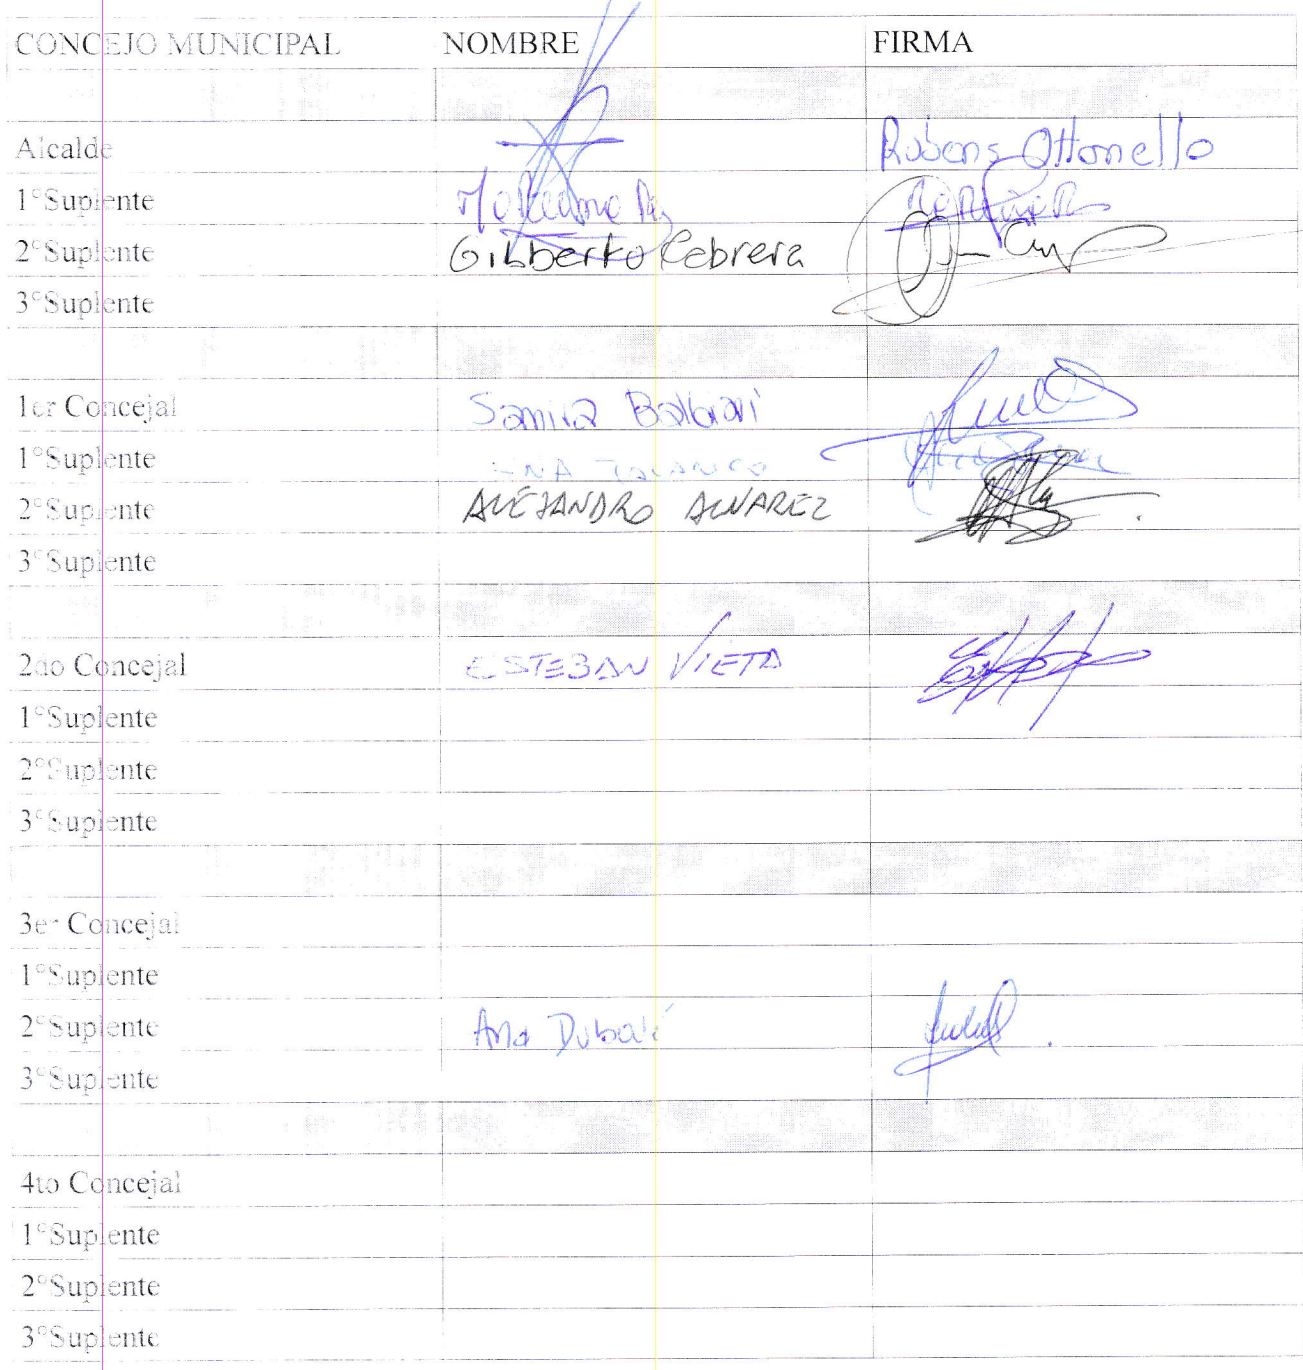 CONCEJO MUNICIPAL NOMBRE FIRMA
Alcalde Rubens Ottonello
1°Suplente
2°Suplente Gilberto Cabrera
3°Suplente
1er Concejal Samira
1°Suplente
2°Suplente ALEJANDRO ALVAREZ
3°Suplente
2do Concejal ESTEBAN VIETA
1°Suplente
2°Suplente
3°Suplente
3er Concejal
1°Suplente
2°Suplente Ana
3°Suplente
4to Concejal
1°Suplente
2°Suplente
3°Suplente